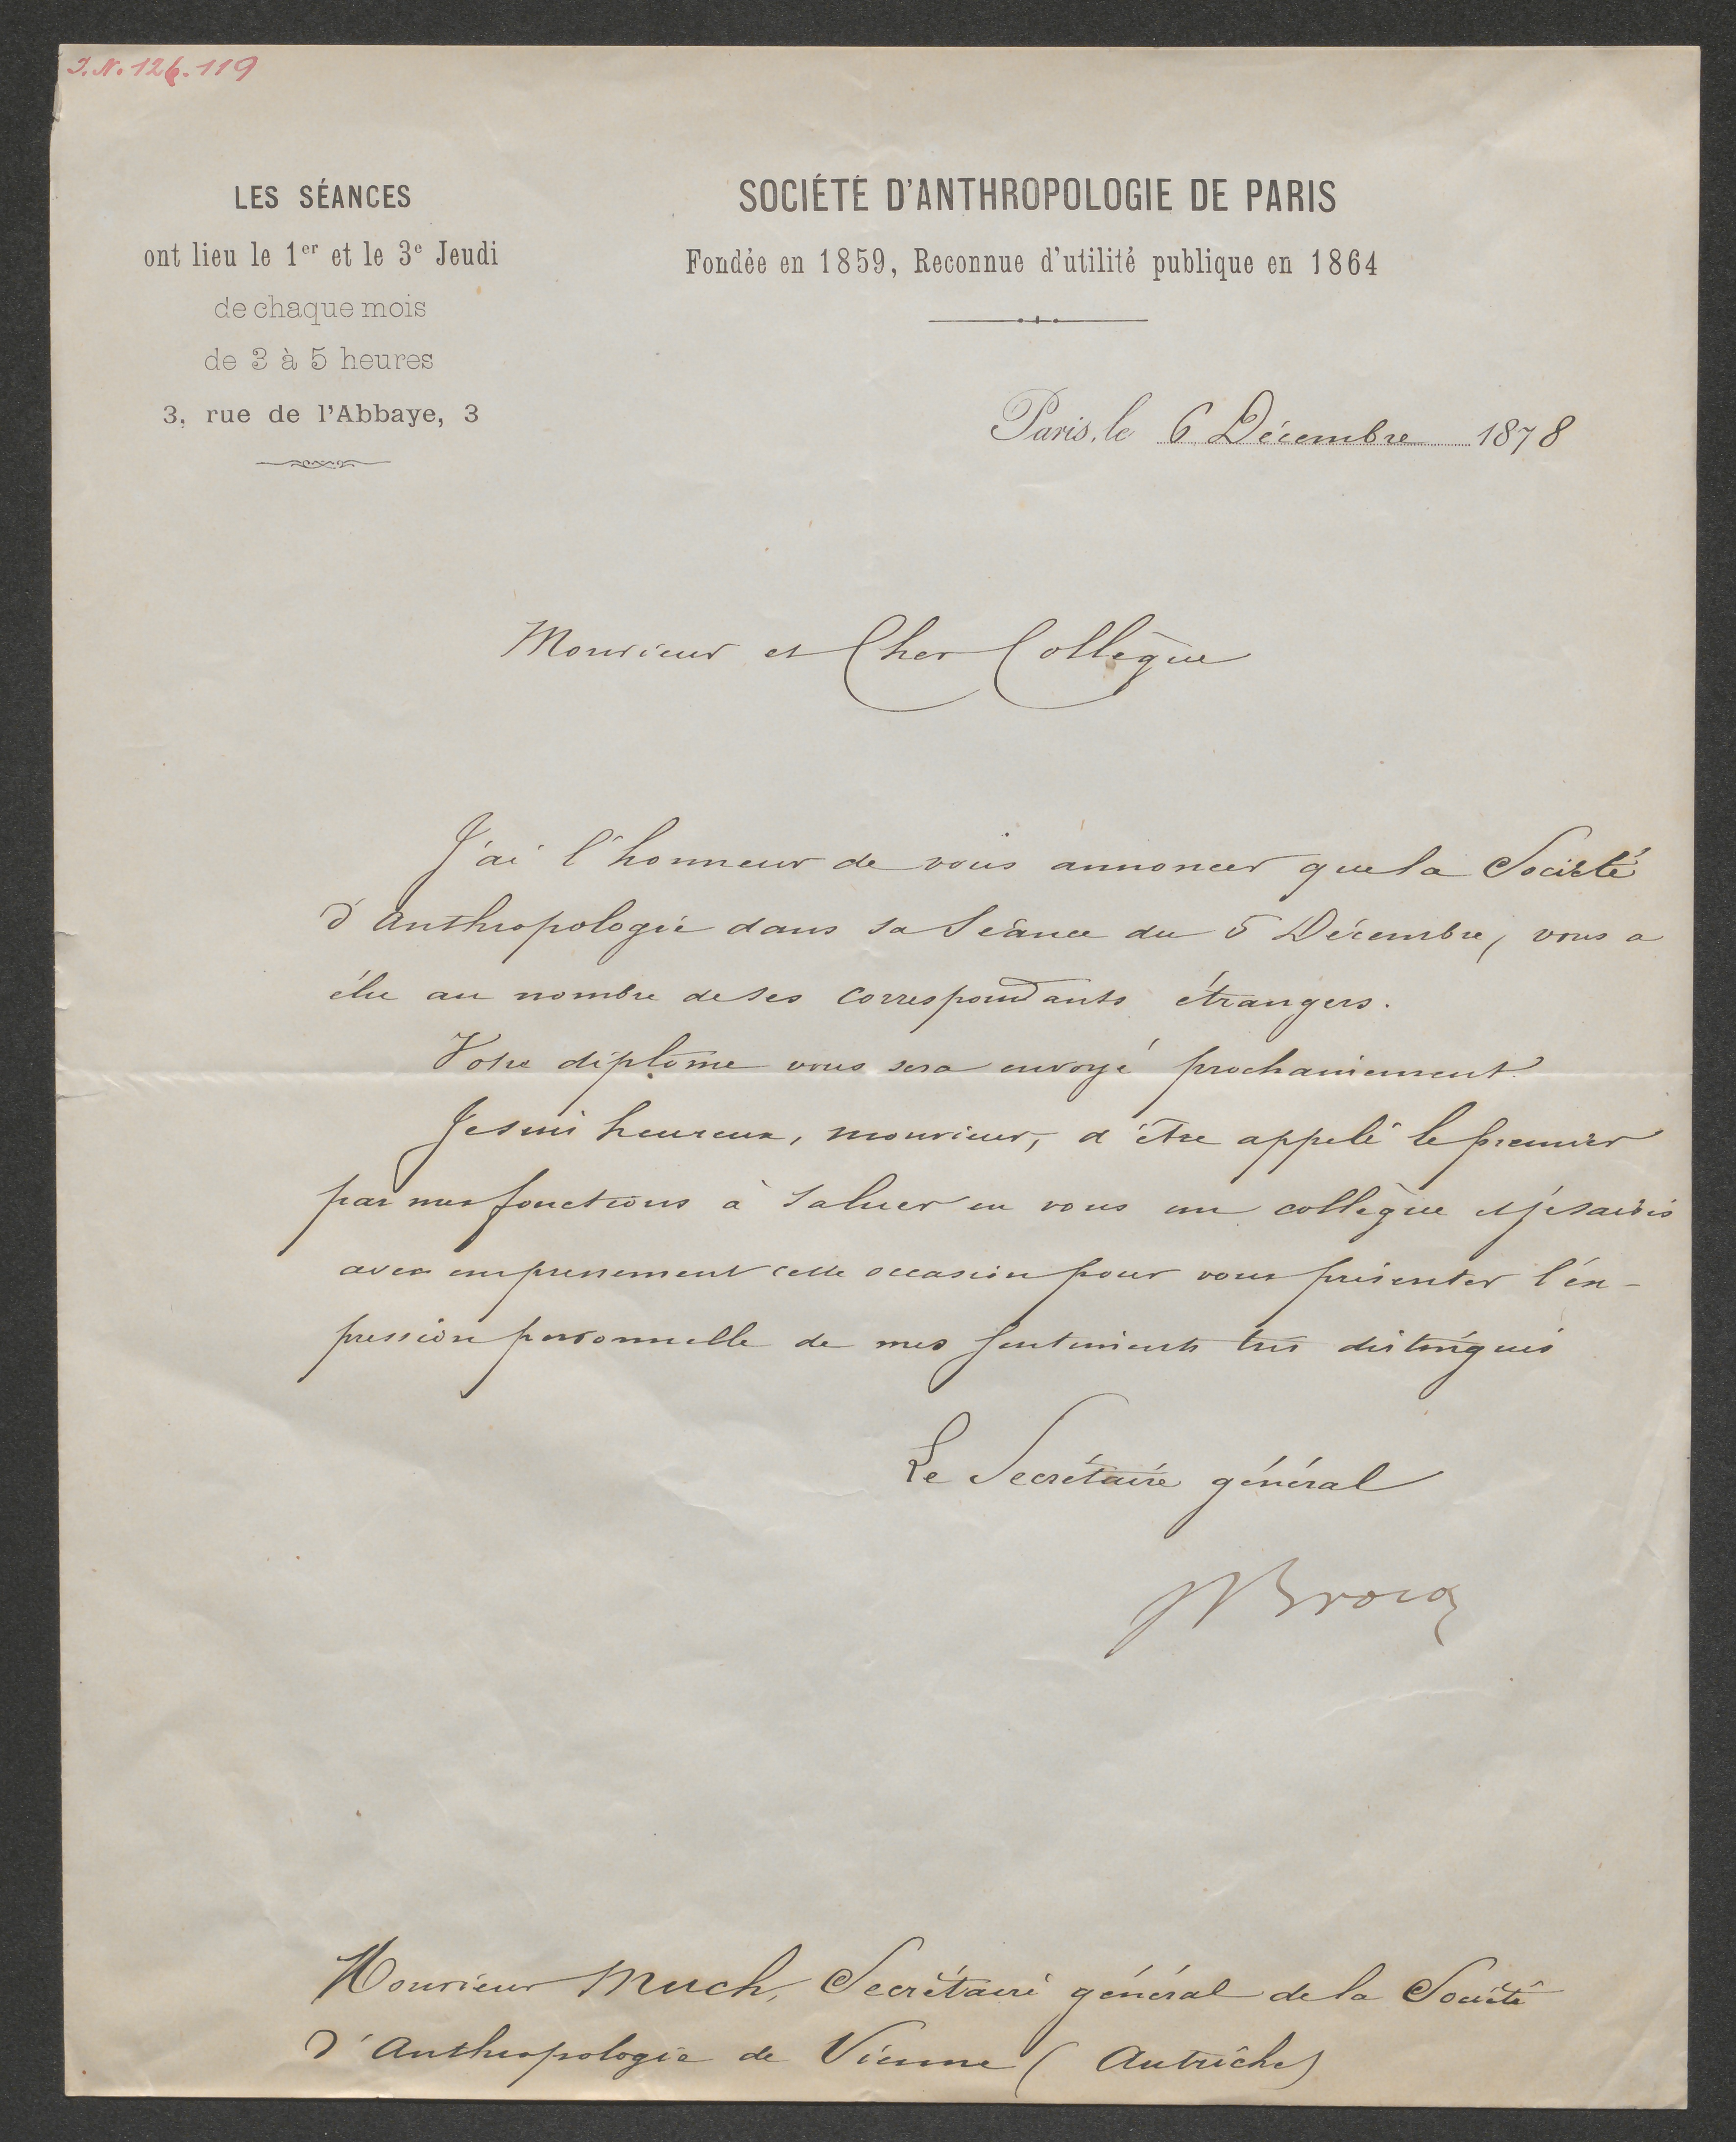 J. N. 126.119
LES SÉANCES
ont lieu le 1er et le 3e Jeudi
de chaque mois
de 3 à 5 heures
3, rue de l'Abbaye, 3
SOCIÉTÉ D'ANTHROPOLOGIE DE PARIS
Fondée en 1859, Reconnue d'utilité publique en 1864
Paris, le 6 Décembre 1878
Monsieur et Cher Collègue
J'ai l'honneur de vous annoncer que la Société
d'Anthropologie dans sa Séance du 5 Décembre, vous a
élu au nombre de ses correspondants étrangers.
Votre diplôme vous sera envoyé prochainement.
Je suis heureux, monsieur, d'être appelé le premier
par mes fonctions à saluer en vous un collègue et je saisis
avec empressement cette occasion pour vous présenter l'ex-
pression personnelle de mes sentiments très distingués
Le Secrétaire général
P Broca
Monsieur Much, Secrétaire général de la Société
d'Anthropologie de Vienne (Autriche)